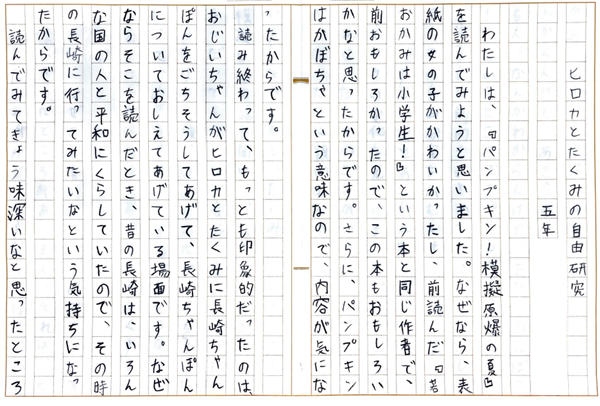 ヒロカとたくみの自由研究
五年
わたしは、『パンプキン!模擬原爆の夏』
を読んでみようと思いました。なぜなら、表
紙の女の子がかわいかったし、前読んだ『若
おかみは小学生!』という本と同じ作者で、
前おもしろかったので、この本もおもしろい
かなと思ったからです。さらに、パンプキン
はかぼちゃという意味なので、内容が気にな
ったからです。
読み終わって、もっとも印象的だったのは、
おじいちゃんがヒロカとたくみに長崎ちゃん
ぽんをごちそうしてあげて、長崎ちゃんぽん
についておしえてあげている場面です。なぜ
ならそこを読んだとき、昔の長崎は、いろん
な国の人と平和にくらしていたので、その時
の長崎に行ってみたいなという気持ちになっ
たからです。
読んでみてきょう味深いなと思ったところ